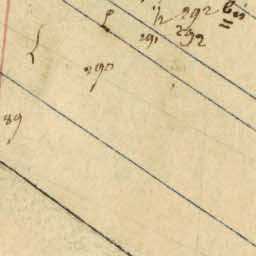 292 bis
291 292
290
89